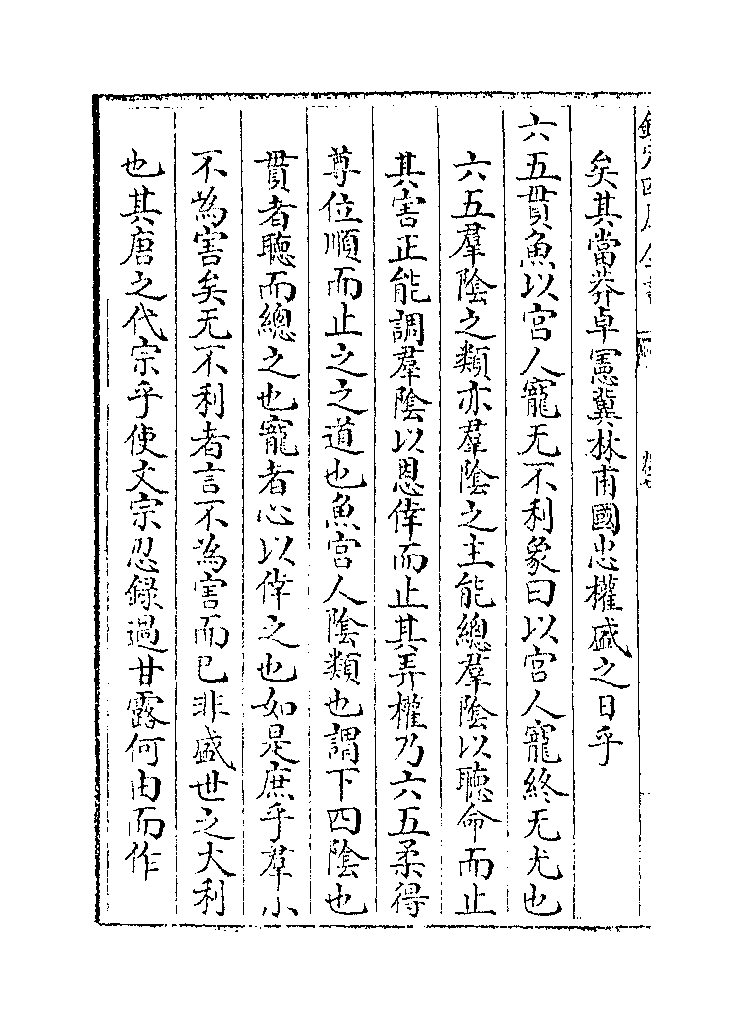 欽定四庫全書
矣其當莽卓憲冀林甫國忠權盛之日乎
六五貫魚以宮人寵无不利象曰以宮人寵終无尤也
六五羣陰之類亦羣陰之主能總羣陰以聽命而止
其害正能調羣陰以恩倖而止其弄權乃六五柔得
尊位順而止之之道也魚宮人陰類也謂下四陰也
貫者聽而總之也寵者心以倖之也如是庶乎羣小
不為害矣无不利者言不為害而已非盛世之大利
也其唐之代宗乎使文宗忍錄過甘露何由而作